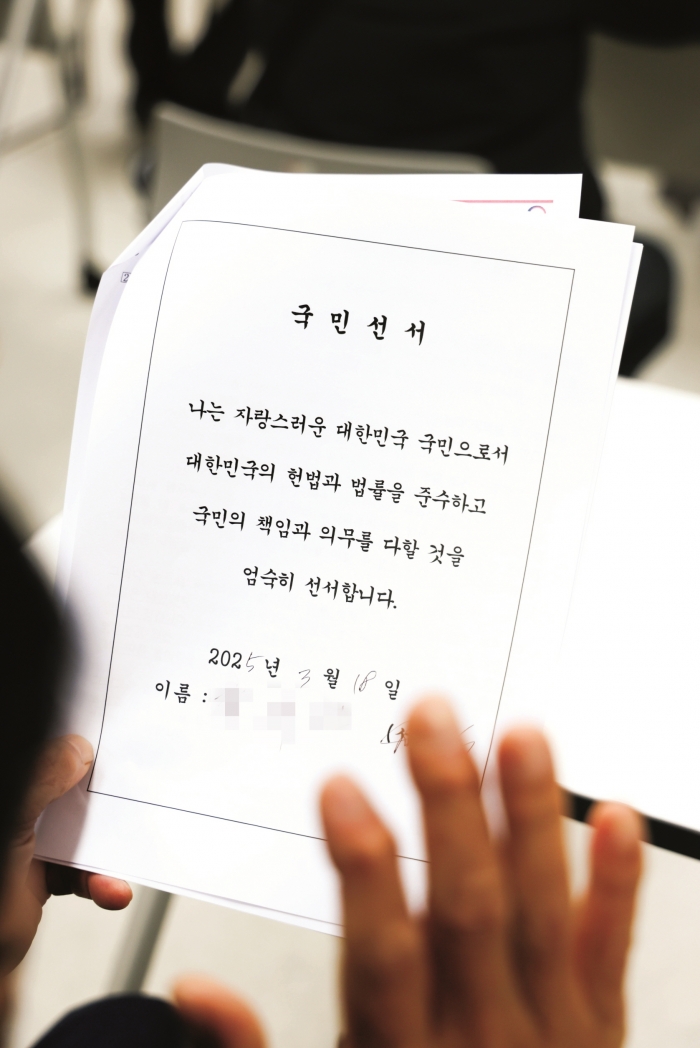 국민선서
나는 자랑스러운 대한민국 국민으로서
대한민국의 헌법과 법률을 준수하고
국민의 책임과 의무를 다할 것을
엄숙히 선서합니다.
2025년 3월 18일
이름 :